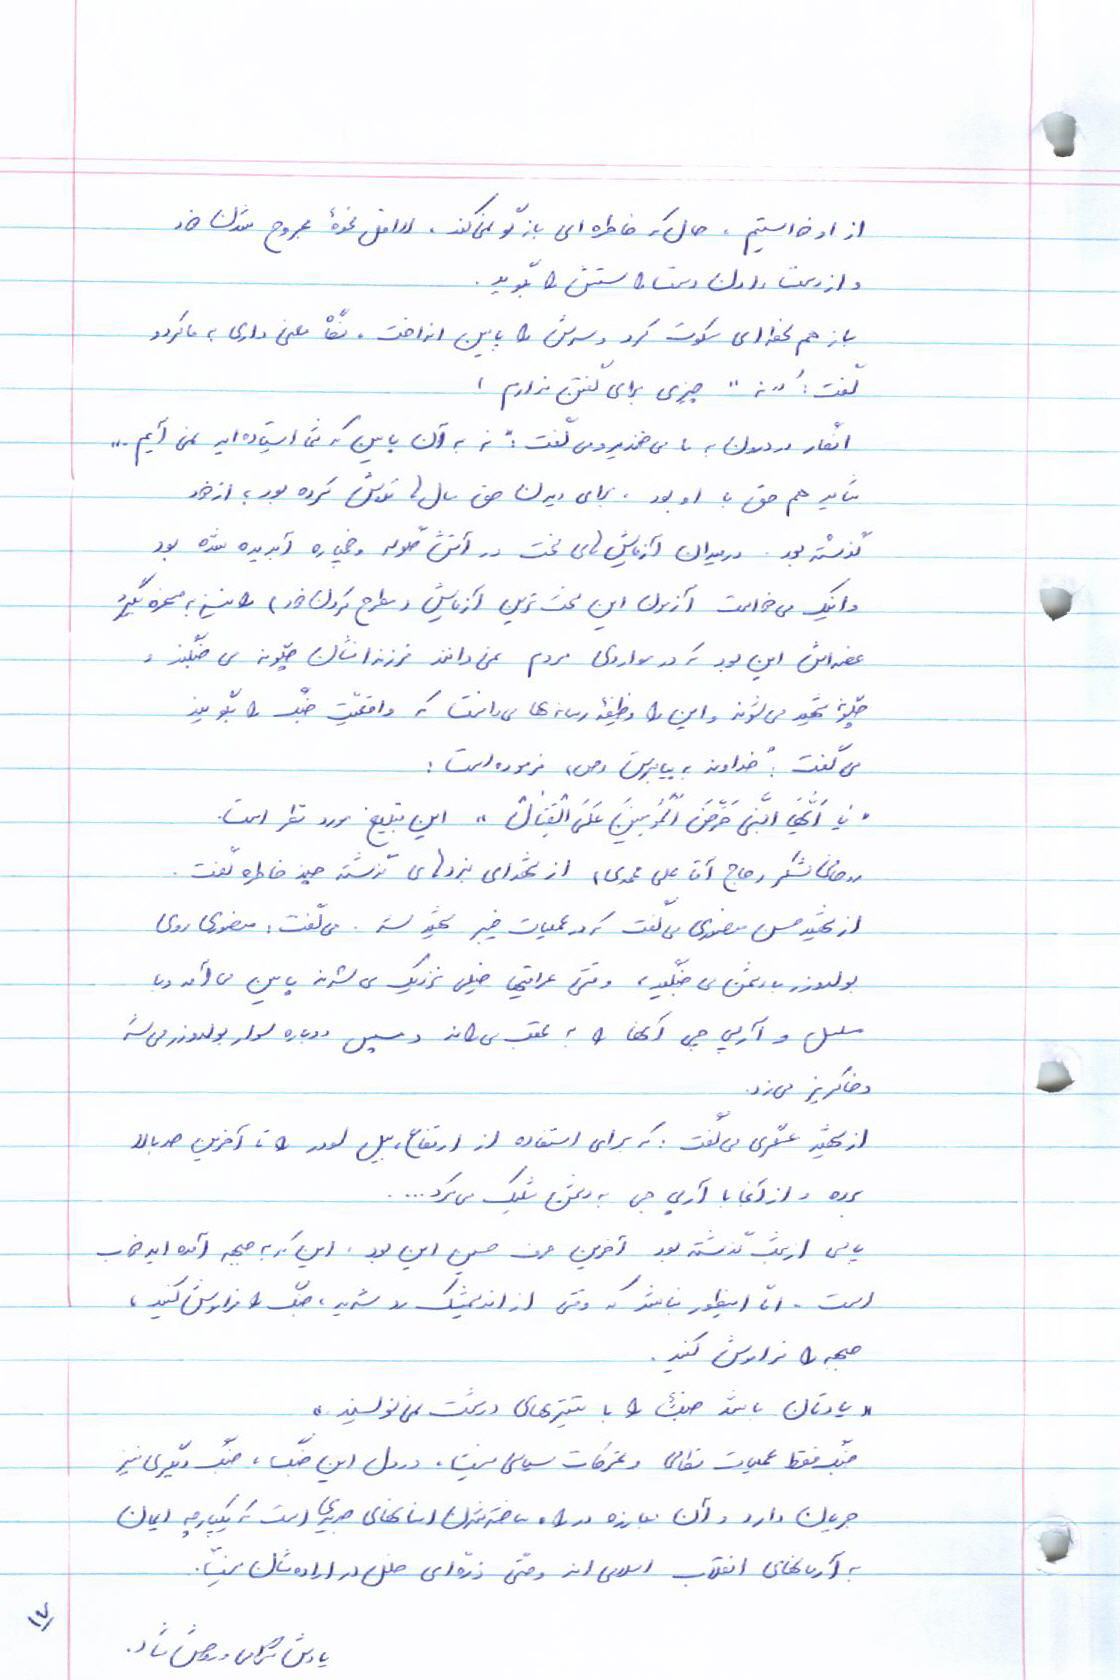 از او خواستیم، حال که خاطره‌ای بازگو نمی‌کند، لااقل نحوهٔ مجروح شدن خود
و از دست دادن دست راستش را بگوید.
باز هم لحظه‌ای سکوت کرد و سرش را پایین انداخت. نگاه معنی داری به ما کرد و
گفت: "نه" چیزی برای گفتن ندارم!
انگار در دلش به ما می‌خندید و می‌گفت: "نه به آن پایین که شما ایستاده‌اید نمی‌آیم...
شاید هم حق با او بود، برای دیدن حق سال‌ها تلاش کرده بود، از خود
گذشته بود. در میدان آزمایش‌های سخت در آتش گلوله و خمپاره آبدیده شده بود
و اینک می‌خواست آزمون این سخت‌ترین آزمایش (مطرح کردن خود) را نیز به سخره بگیرد
غصه‌اش این بود که در مواردی مردم نمی‌دانند فرزندانشان چگونه می‌جنگند و
چگونه شهید می‌شوند و این را وظیفهٔ رسانه‌ها می‌دانست که واقعیت جنگ را بگویند
می‌گفت: "خداوند به پیامبرش (ص) فرموده است:
"یا اَیُّهَا النَّبِی حَرِّضَ الْمُومِنینَ عَلَی الْقِتال" این تبلیغ مورد نظر است.
از شهدای نبردهای گذشته چند خاطره گفت.
از شهید حسن منصوری می‌گفت که در عملیات خیبر شهید شد. می‌گفت: منصوری روی
بولدوزر با دشمن می‌جنگید، وقتی عراقیها خیلی نزدیک می‌شدند پایین می‌آمد و با
مسلسل و آرپی جی آنها را به عقب می‌راند و سپس دوباره سوار بولدوزر می‌شد
و خاکریز می‌زد.
از شهید عسگری می‌گفت: که برای استفاده از ارتفاع، بیل لودر را تا آخرین حد بالا
برده و از آنجا با آرپی جی به دشمن شلیک می‌کرد....
پاسی از شب گذشته بود آخرین حرف حسین این بود، این که به جبهه آمده‌اید خوب
است. امّا اینطور نباشد که وقتی از اندیمشک رد شدید، جنگ را فراموش کنید،
جبهه را فراموش کنید.
"یادتان باشد جنگ را با تیترهای درشت نمی‌نویسند."
جنگ فقط عملیات نظامی و تحرکات سیاسی نیست، در دل این جنگ، جنگ دیگری نیز
جریان دارد و آن مبارزه در راه ساخته شدن انسانهای جدیدی است که یکپارچه ایمان
به آرمانهای انقلاب اسلامی‌اند و حتی ذرّه‌ای خلل در اراده‌شان نیست.
یادش گرامی و روحش شاد.
۱۷